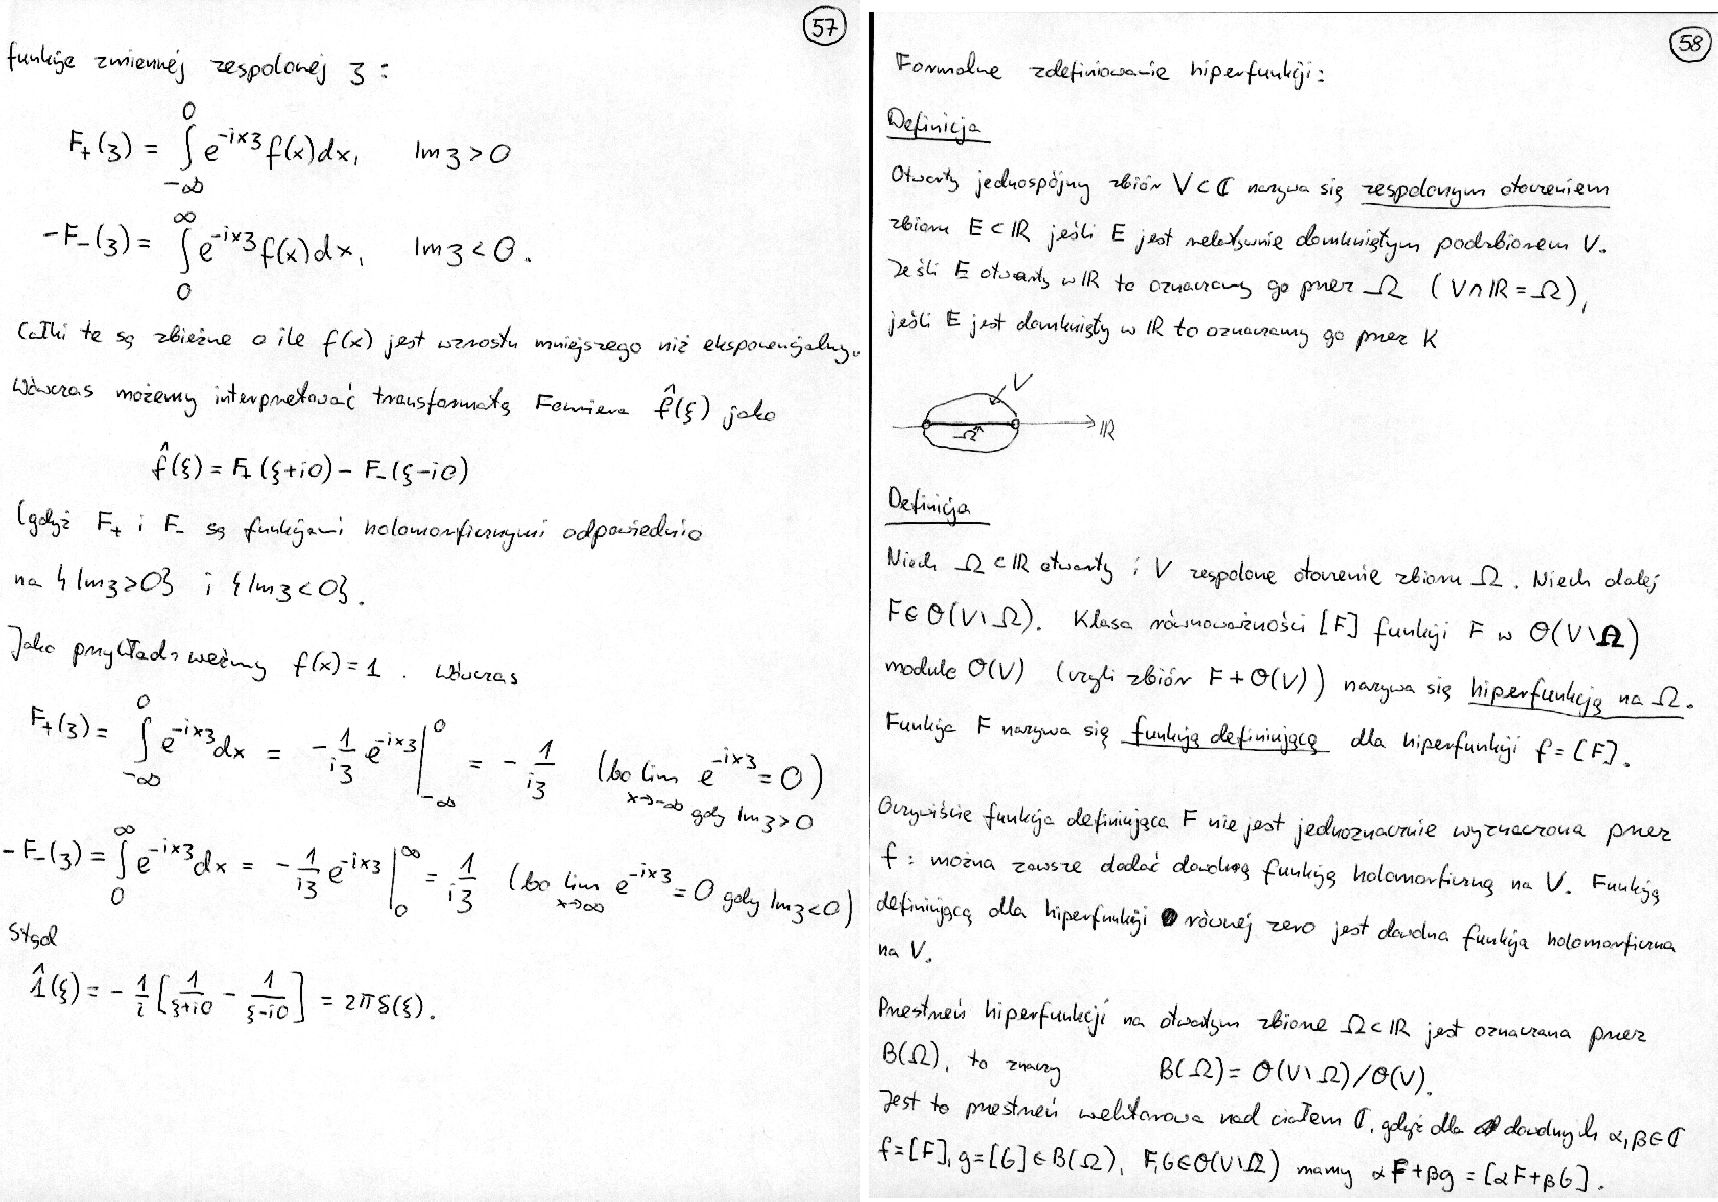 57
funkcje zmiennej zespolonej z :
F₊(z) = ∫_{-∞}^{0} e^{-ixz} f(x)dx, Im z > 0
-F₋(z) = ∫_{0}^{∞} e^{-ixz} f(x)dx, Im z < 0.
Całki te są zbieżne o ile f(x) jest wzrostu mniejszego niż eksponencjalny.
Wówczas możemy interpretować transformatę Fouriera f̂(ξ) jako
f̂(ξ) = F₊(ξ+i0) - F₋(ξ-i0)
(gdyż F₊ i F₋ są funkcjami holomorficznymi odpowiednio
na {Im z > 0} i {Im z < 0}.
Jako przykład weźmy f(x) = 1 . Wówczas
F₊(z) = ∫_{-∞}^{0} e^{-ixz} dx = -1/(iz) e^{-ixz} |_{-∞}^{0} = -1/(iz) (bo lim_{x→-∞} e^{-ixz} = 0)
gdy Im z > 0
-F₋(z) = ∫_{0}^{∞} e^{-ixz} dx = -1/(iz) e^{-ixz} |_{0}^{∞} = 1/(iz) (bo lim_{x→∞} e^{-ixz} = 0 gdy Im z < 0)
Stąd
1̂(ξ) = -1/i [1/(ξ+i0) - 1/(ξ-i0)] = 2πδ(ξ).
58
Formalne zdefiniowanie hiperfunkcji:
Definicja
Otwarty jednospójny zbiór V ⊂ ℂ nazywa się zespolonym otoczeniem
zbioru E ⊂ ℝ jeśli E jest relatywnie domkniętym podzbiorem V.
Jeśli E otwarty w ℝ to oznaczamy go przez Ω (V ∩ ℝ = Ω),
jeśli E jest domknięty w ℝ to oznaczamy go przez K
V
Ω
ℝ
Definicja
Niech Ω ⊂ ℝ otwarty i V zespolone otoczenie zbioru Ω. Niech dalej
F ∈ O(V\Ω). Klasa równoważności [F] funkcji F w O(V\Ω)
modulo O(V) (czyli zbiór F + O(V)) nazywa się hiperfunkcją na Ω.
Funkcja F nazywa się funkcją definiującą dla hiperfunkcji f = [F].
Oczywiście funkcja definiująca F nie jest jednoznacznie wyznaczona przez
f : można zawsze dodać dowolną funkcję holomorficzną na V. Funkcją
definiującą dla hiperfunkcji równej zero jest dowolna funkcja holomorficzna
na V.
Przestrzeń hiperfunkcji na otwartym zbiorze Ω ⊂ ℝ jest oznaczana przez
B(Ω), to znaczy B(Ω) = O(V\Ω)/O(V).
Jest to przestrzeń wektorowa nad ciałem ℂ, gdyż dla dowolnych α, β ∈ ℂ
f = [F], g = [G] ∈ B(Ω), F, G ∈ O(V\Ω) mamy αF + βg = [αF + βG].